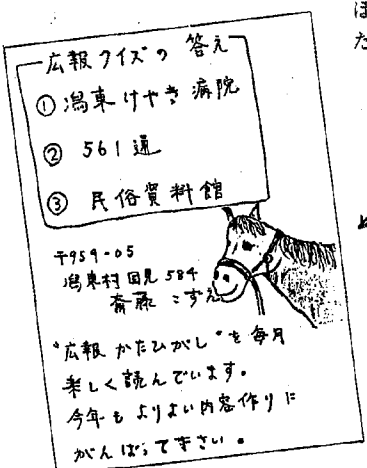 広報クイズの答え
① 潟東けやき病院
② 561通
③ 民俗資料館
〒959-05
潟東村国見584
斎藤こずえ
"広報かたひがし"を毎月
楽しく読んでいます。
今年もよりよい内容作りに
がんばって下さい。
ほ
た